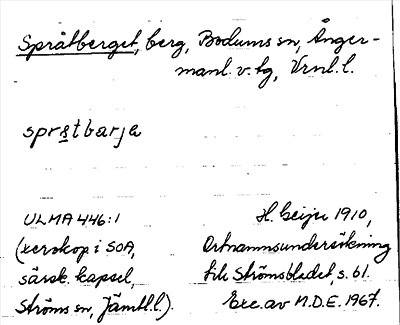 Språtberget, berg, Bodums sn, Ånger-
manl. v. tg, Vrnl. l.
språtbarja
ULMA 446:1
(xerokop i SOA,
särsk. kapsel,
Ströms sn, Jämtl. l.).
H. Geijer 1910,
Ortnamnsundersökning
fili Strömsbladet, s. 61.
Exc. av M.D.E. 1967.